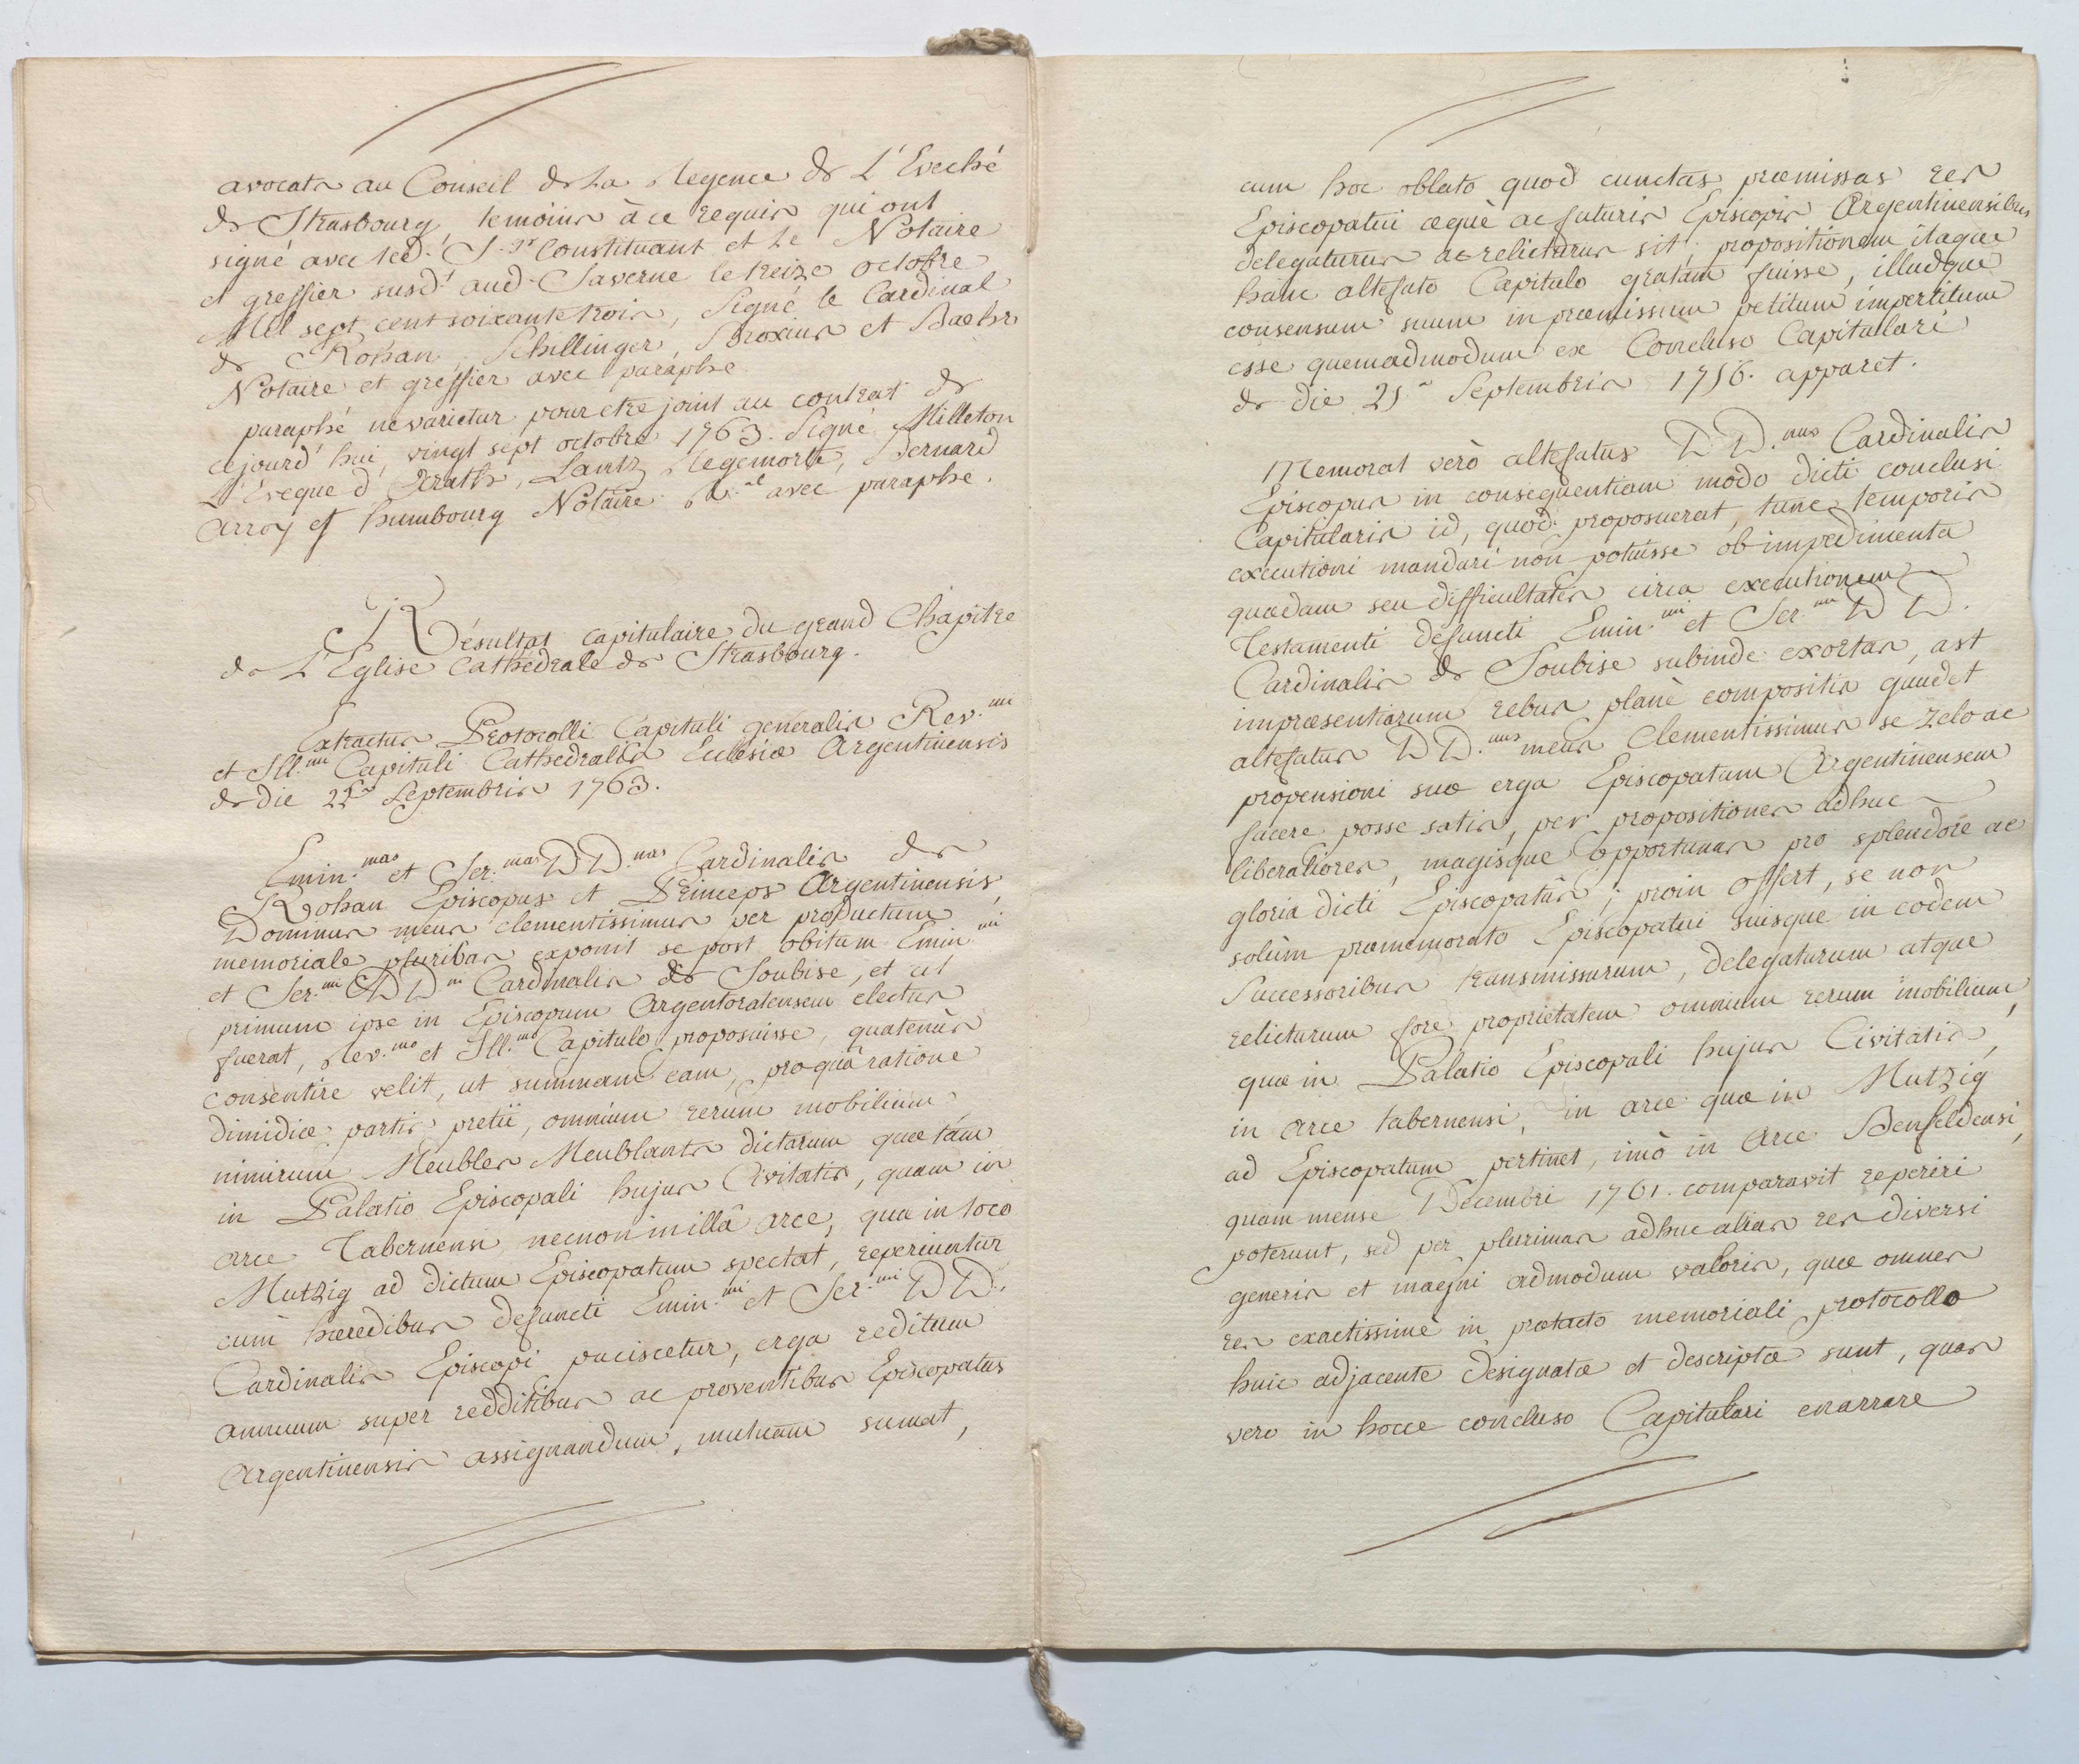 avocats au Conseil de La Regence de L'Eveché
de Strasbourg, temoins à ce requis qui ont
signé avec led. S.gr Constituant et Le Notaire
et greffier susd.t aud. Saverne le treize octobre
Mil sept cent soixante trois, Signé le Cardinal
de Rohan, Schillinger, Broxius et Baehr
Notaire et greffier avec paraphe
paraphé ne varietur pour etre joint au contrat de
cejourd'hui, vingt sept octobre 1763. Signé Milleton
L'Eveque d' Arath, Lantz, Regemorte, Bernard
Arroy et humbourg Notaire R.al avec paraphe.
Résultat capitulaire du grand Chapitre
de L'Eglise Cathédrale de Strasbourg.
Extractus Protocolli Capituli generalis Rev.mi
et Ill.mi Capituli Cathedralis Eclesiæ Argentinensis
de die 22a Septembris 1763.
Emin.mus et Ser.mus D D.nus Cardinalis de
Rohan Episcopus et Princeps Argentinensis,
Dominus meus clementissimus per productum
memoriale pluribus exponit se post obitum Emin.mi
et Ser.mi D D.ni Cardinalis de Soubise, et ut
primum ipse in Episcopum Argentoratensem electus
fuerat, Rev.mo et Ill.mo Capitulo proposuisse, quatenùs
consentire velit, ut summam eam, pro quâ ratione
dimidiæ partis pretii, omnium rerum mobilium,
nimirum Meubles Meublants dictarum quæ tám
in Palatio Episcopali hujus Civitatis, quam in
arce Tabernensi, necnon in illâ arce, quæ in loco
Mutzig ad dictum Episcopatum spectat, reperiuntur
cum hæredibus defuncti Emin.mi et Ser.mi D D.
Cardinalis Episcopi paciscetur, erga reditum
annuum super redditibus ac proventibus Episcopatus
Argentinensis assignandum, mutuam sumat,
cum hoc oblato quod cunctas præmissas res
Episcopatui æquè ac futuris Episcopis Argentinensibus
delegaturus ac relicturus sit; propositionem itaque
hanc altefato Capitulo gratam fuisse, illudque
consensum suum in præmissum petitum impertitum
esse quemadmodum ex Concluso Capitulari
de die 25a Septembris 1756. apparet.
Memorat verò altefatus D D.nus Cardinalis
Episcopus in consequentiam modo dicti conclusi
Capitularis id, quod proposuerat, tunc temporis
executioni mandari non potuisse ob impedimenta
quædam seu difficultates circa executionem
Testamenti defuncti Emin.mi et Ser.mi D D.
Cardinalis de Soubise subinde exortas, ast
impræsentiarum rebus planè compositis gaudet
altefatus D D.nus meus Clementissimus se zelo ac
propensioni suæ erga Episcopatum Argentinensem
facere posse satis, per propositiones adhuc
liberaliores, magisque opportunas pro splendore ac
gloria dicti Episcopatûs; proin offert, se non
solùm præmemorato Episcopatui suisque in eodem
Successoribus transmissurum, delegaturum atque
relicturum fore proprietatem omnium rerum mobilium,
quæ in Palatio Episcopali hujus Civitatis,
in arce tabernensi, in arce quæ in Mutzig
ad Episcopatum pertinet, imò in Arce Benfeldensi,
quam mense Decembri 1761. comparavit reperiri
poterunt, sed per plurimas adhuc alias res diversi
generis et magni admodum valoris, quæ omnes
res exactissimè in prætacto memoriali protocollo
huic adjacente designatæ et descriptæ sunt, quas
vero in hocce concluso Capitulari enarrare